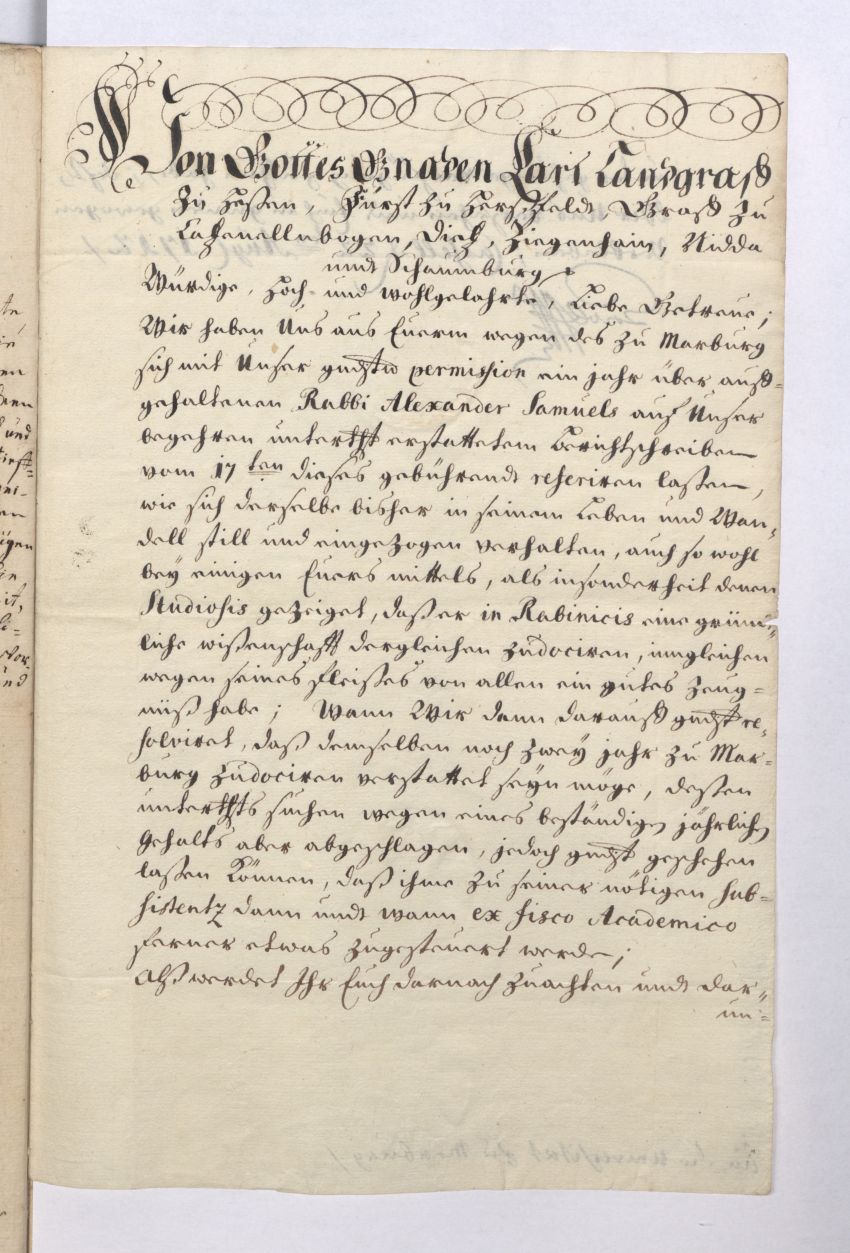 Von Gottes Gnaden Carl Landgraff
zu Heßen, Fürst zu Herschfeldt, Graff zu
Catzenellnbogen, Dietz, Ziegenhain, Nidda
undt Schaumburg
Würdige, Hoch- und wohlgelahrte, Liebe Getreue;
Wir haben Uns aus Euerm wegen des zu Marburg
sich mit Unser gndstr permission ein jahr über auff-
gehaltenen Rabbi Alexander Samuels auf Unser
begehren unterthst erstattetem Berichtschreiben
vom 17ten dieses gebührendt referiren laßen,
wie sich derselbe bisher in seinem Leben und Wan-
dell still und eingezogen verhalten, auch so wohl
bey einigen Euers mittels, als insonderheit denen
Studiosis gezeiget, daß er in Rabinicis eine gründ-
liche wißenschafft dergleichen zu dociren, imgleichen
wegen seines fleißes von allen ein gutes Zeug-
nüß habe; Wann Wir dann darauff gndst re-
solviret, daß demselben noch zwey jahr zu Mar-
burg zu dociren verstattet seyn möge, deßen
unterthsts suchen wegen eines beständigen jährlichen
Gehalts aber abgeschlagen, jedoch gndst geschehen
laßen können, daß ihme zu seiner nötigen sub-
sistentz dann undt wann ex fisco Academico
ferner etwas zugesteuert werde;
Alß werdet Ihr Euch darnach zu achten undt dar-
un-